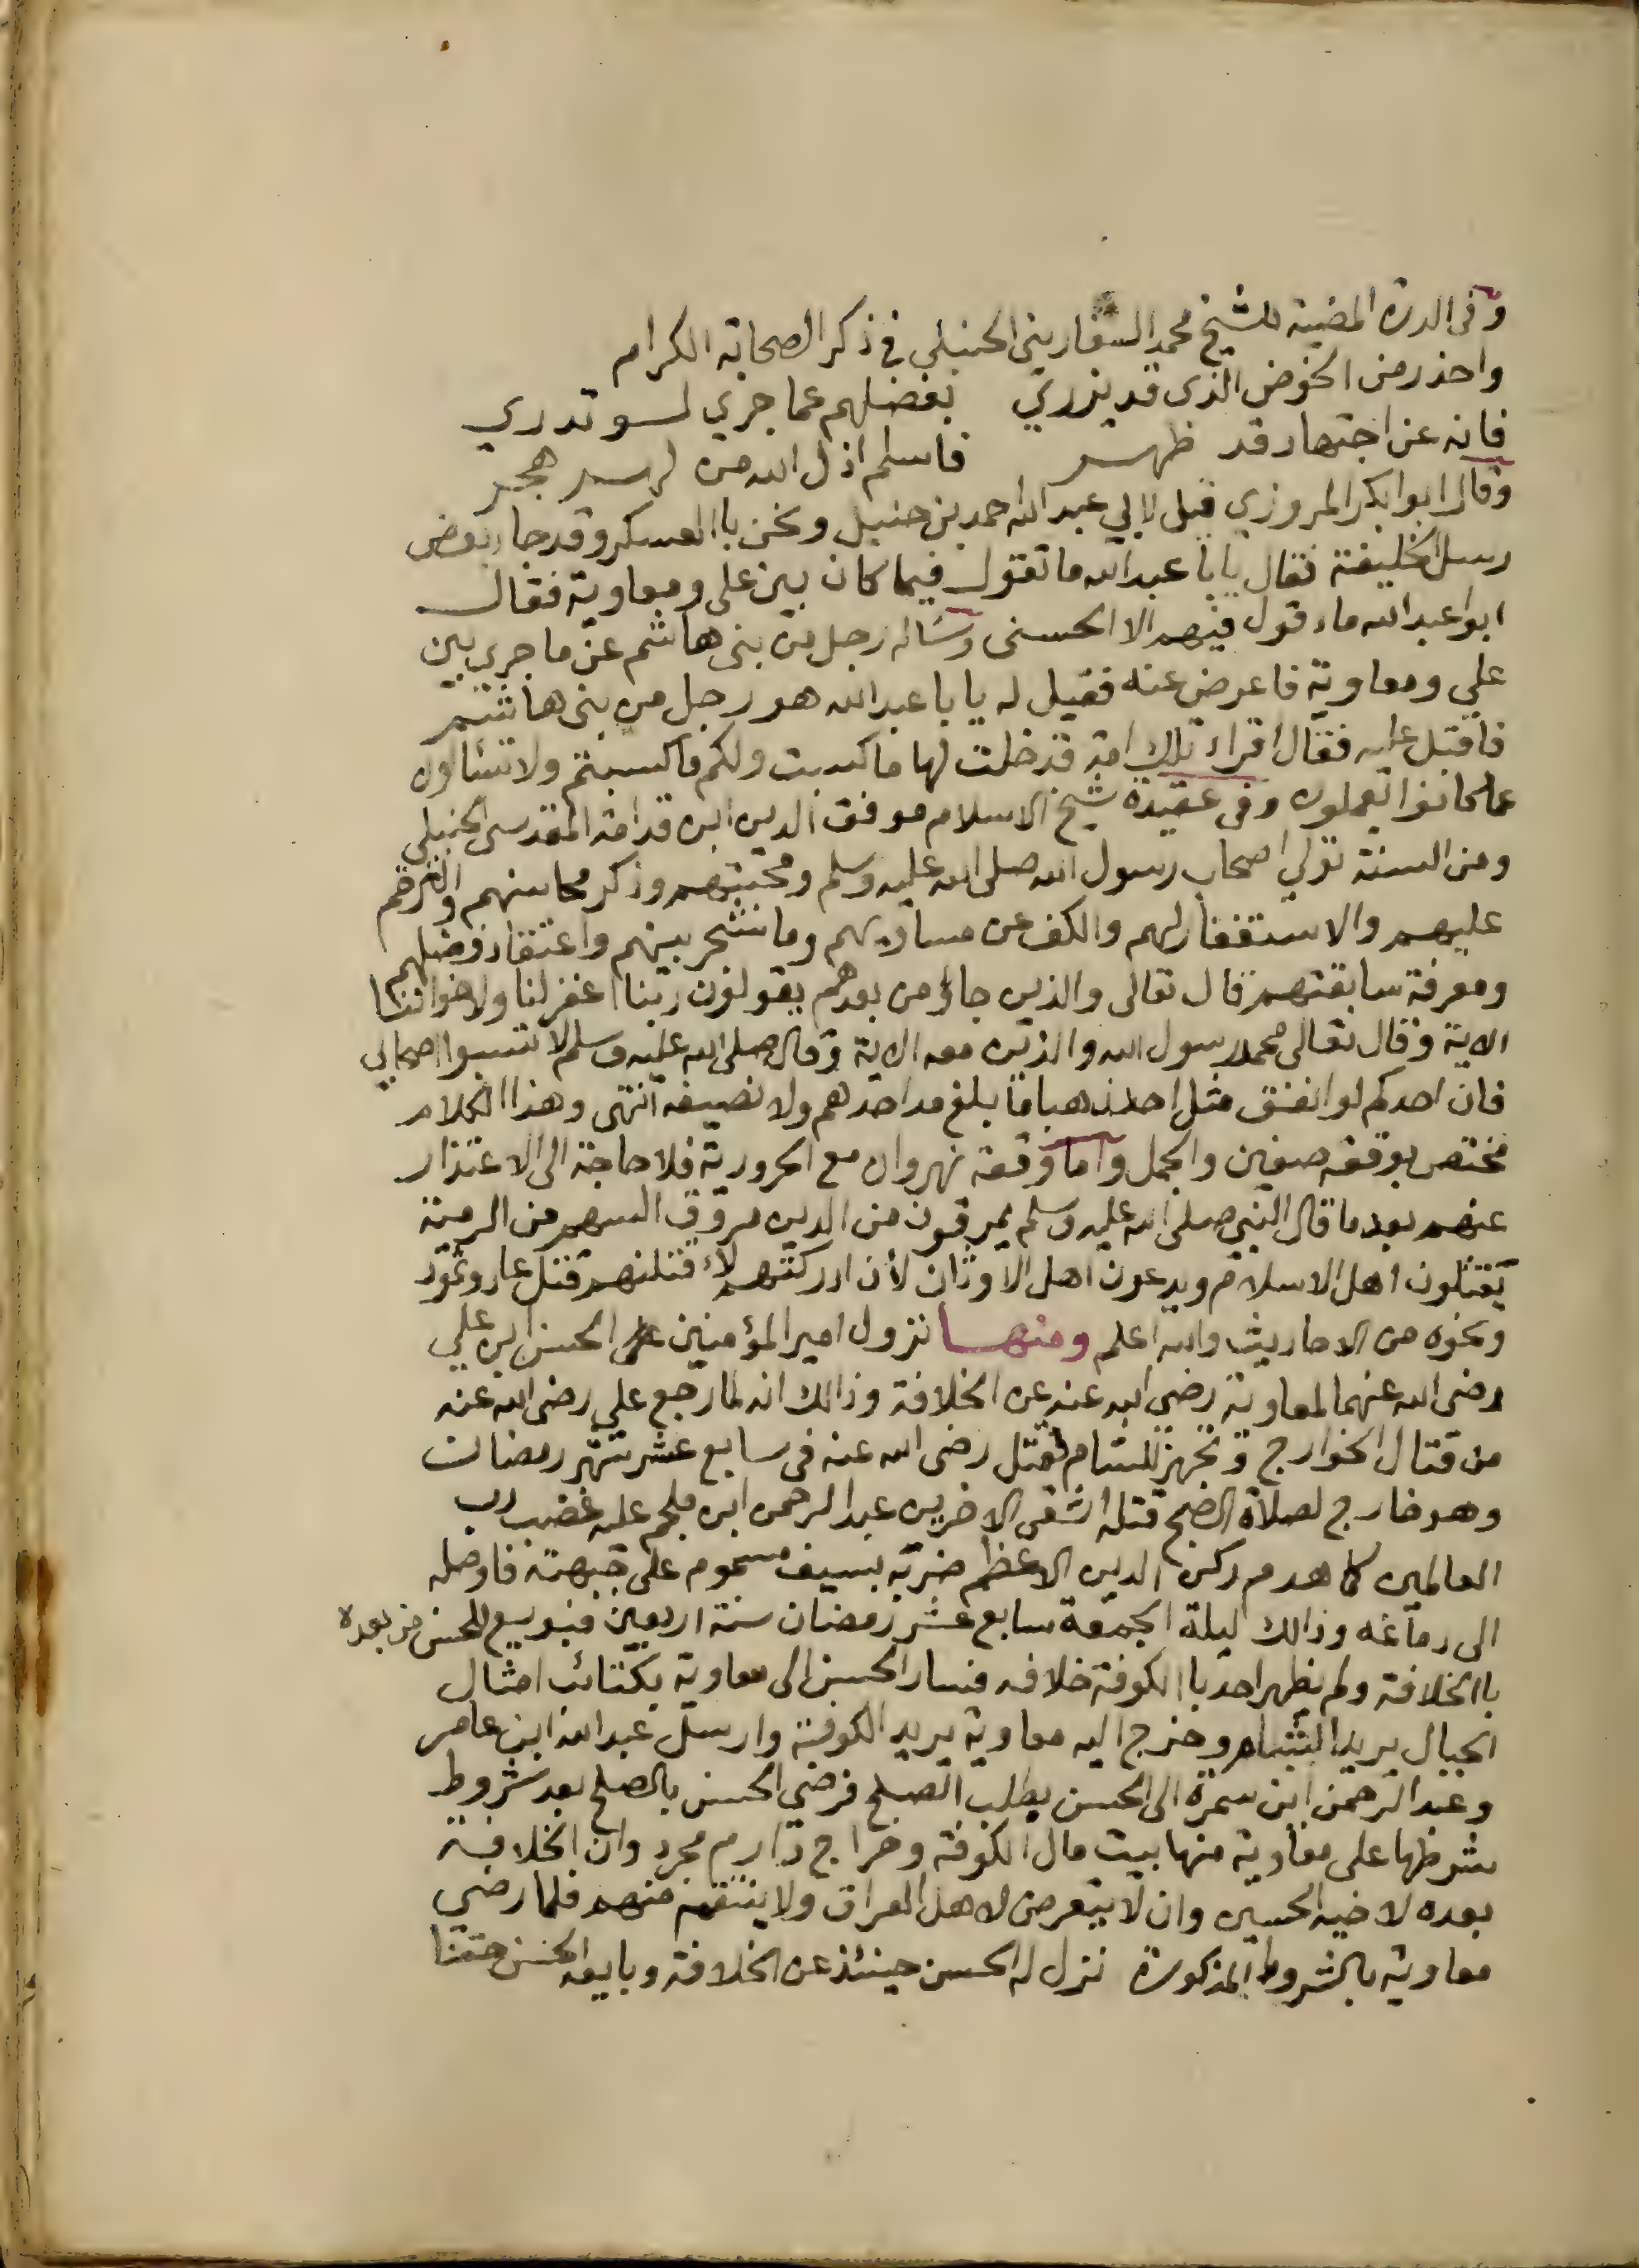 وفي الدرة المضية للشيخ محمد السفاريني الحنبلي في ذكر الصحابة الكرام
واحذر من الخوض الذي قد يزري بفضلهم عما جرى لو تدري
فانه عن اجتهاد قد ظهر فاسلم اذل الله من لهم هجر
وقال ابو ابكر المروزي قيل لابي عبد الله احمد بن حنبل ونحن باالعسكر وقد جاء بعض
رسل الخليفة فقال يابا عبد الله ما تقول فيما كان بين علي ومعاوية فقال
ابو عبد الله ما اقول فيهم الا الحسنى وساله رجل من بني هاشم عن ما جرى بين
علي ومعاوية فاعرض عنه فقيل له يا با عبد الله هو رجل من بني هاشم
فاقبل عليه فقال اقراء تلك امة قد خلت لها ما كسبت ولكم ما كسبتم ولا تسئالون
عما كانوا يعملون وفي عقيدة شيخ الاسلام موفق الدين ابن قدامة المقدسي الحنبلي
ومن السنة تولي اصحاب رسول الله صلى الله عليه وسلم ومحبتهم وذكر محاسنهم والترحم
عليهم والاستغفار لهم والكف عن مساويهم وما شجر بينهم واعتقاد فضلهم
ومعرفة سابقتهم قال تعالى والذين جاؤ من بعدهم يقولون ربنا اغفر لنا ولاخواننا
الاية وقال تعالى محمد رسول الله والذين معه الاية وقال صلى الله عليه وسلم لا تسبوا اصحابي
فان احدكم لو انفق مثل احد ذهبا ما بلغ مد احدهم ولا نصيفه انتهى وهذا الكلام
مختص بوقعة صفين والجمل واما وقعة نهروان مع الحرورية فلا حاجة الى الاعتذار
عنهم بعد ما قال النبي صلى الله عليه وسلم يمرقون من الدين مروق السهم من الرمية
يقتلون اهل الاسلام ويدعون اهل الاوثان لأن ادركتهم لاء قتلنهم قتل عاد وثمود
ونحوه من الاحاديث والله اعلم ومنها نزول امير المؤمنين الحسن ابن علي
رضي الله عنهما لمعاوية رضي الله عنه عن الخلافة وذالك انه لما رجع علي رضي الله عنه
من قتال الخوارج وتجهز للشام فقتل رضي الله عنه في سابع عشر شهر رمضان
وهو خارج لصلاة الصبح قتله اشقى الاخرين عبد الرحمن ابن ملجم عليه غضب رب
العالمين كما هدم ركن الدين الاعظم ضربه بسيف مسموم على جبهته فاوصله
الى دماغه وذالك ليلة الجمعة سابع عشر رمضان سنة اربعين فبويع للحسن من بعده
باالخلافة ولم يظهر احد باالكوفة خلافه فسار الحسن الى معاوية بكتائب امثال
الجبال يريد الشام وخرج اليه معاوية يريد الكوفة وارسل عبد الله ابن عامر
وعبد الرحمن ابن سمرة الى الحسن يطلب الصلح فرضي الحسن بالصلح بعد شروط
شرطها على معاوية منها بيت مال الكوفة وخراج دارم مجرد وان الخلافة
بعده لاخيه الحسين وان لا يتعرض لاهل العراق ولا ينتقم منهم فلما رضي
معاوية بالشروط المذكورة نزل له الحسن حينئذ عن الخلافة وبايعه الحسن حقنا